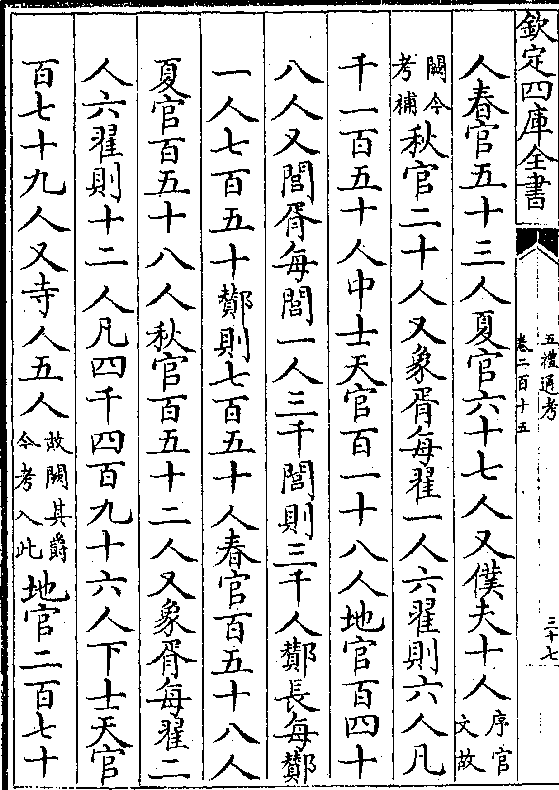 欽定四庫全書
五禮通考
卷二百十五
三十七
人春官五十三人夏官六十七人又僕夫十人序官文故
闕今考補秋官二十人又象胥每翟一人六翟則六人凡
千一百五十人中士天官百一十八人地官百四十
八人又閭胥每閭一人三千閭則三千人酇長每酇
一人七百五十酇則七百五十人春官百五十八人
夏官百五十八人秋官百五十二人又象胥每翟二
人六翟則十二人凡四千四百九十六人下士天官
百七十九人又寺人五人故闕其爵今考入此地官二百七十